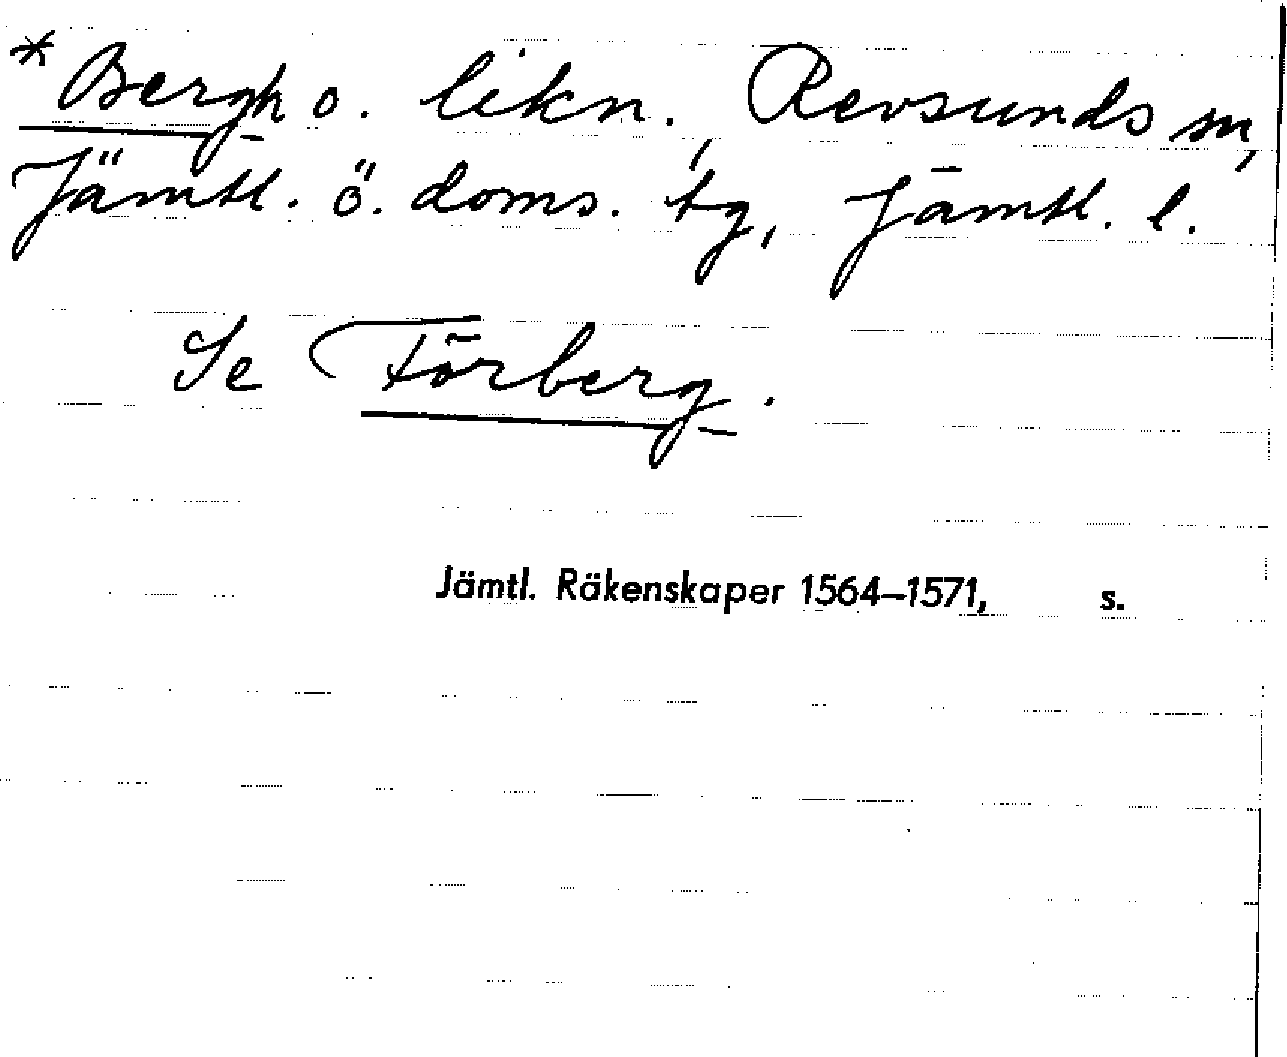 *Bergh o. likn., Revsunds sn,
Jämtl. ö. doms. tg, Jämtl. l.
Se Törberg.
Jämtl. Räkenskaper 1564–1571, s.